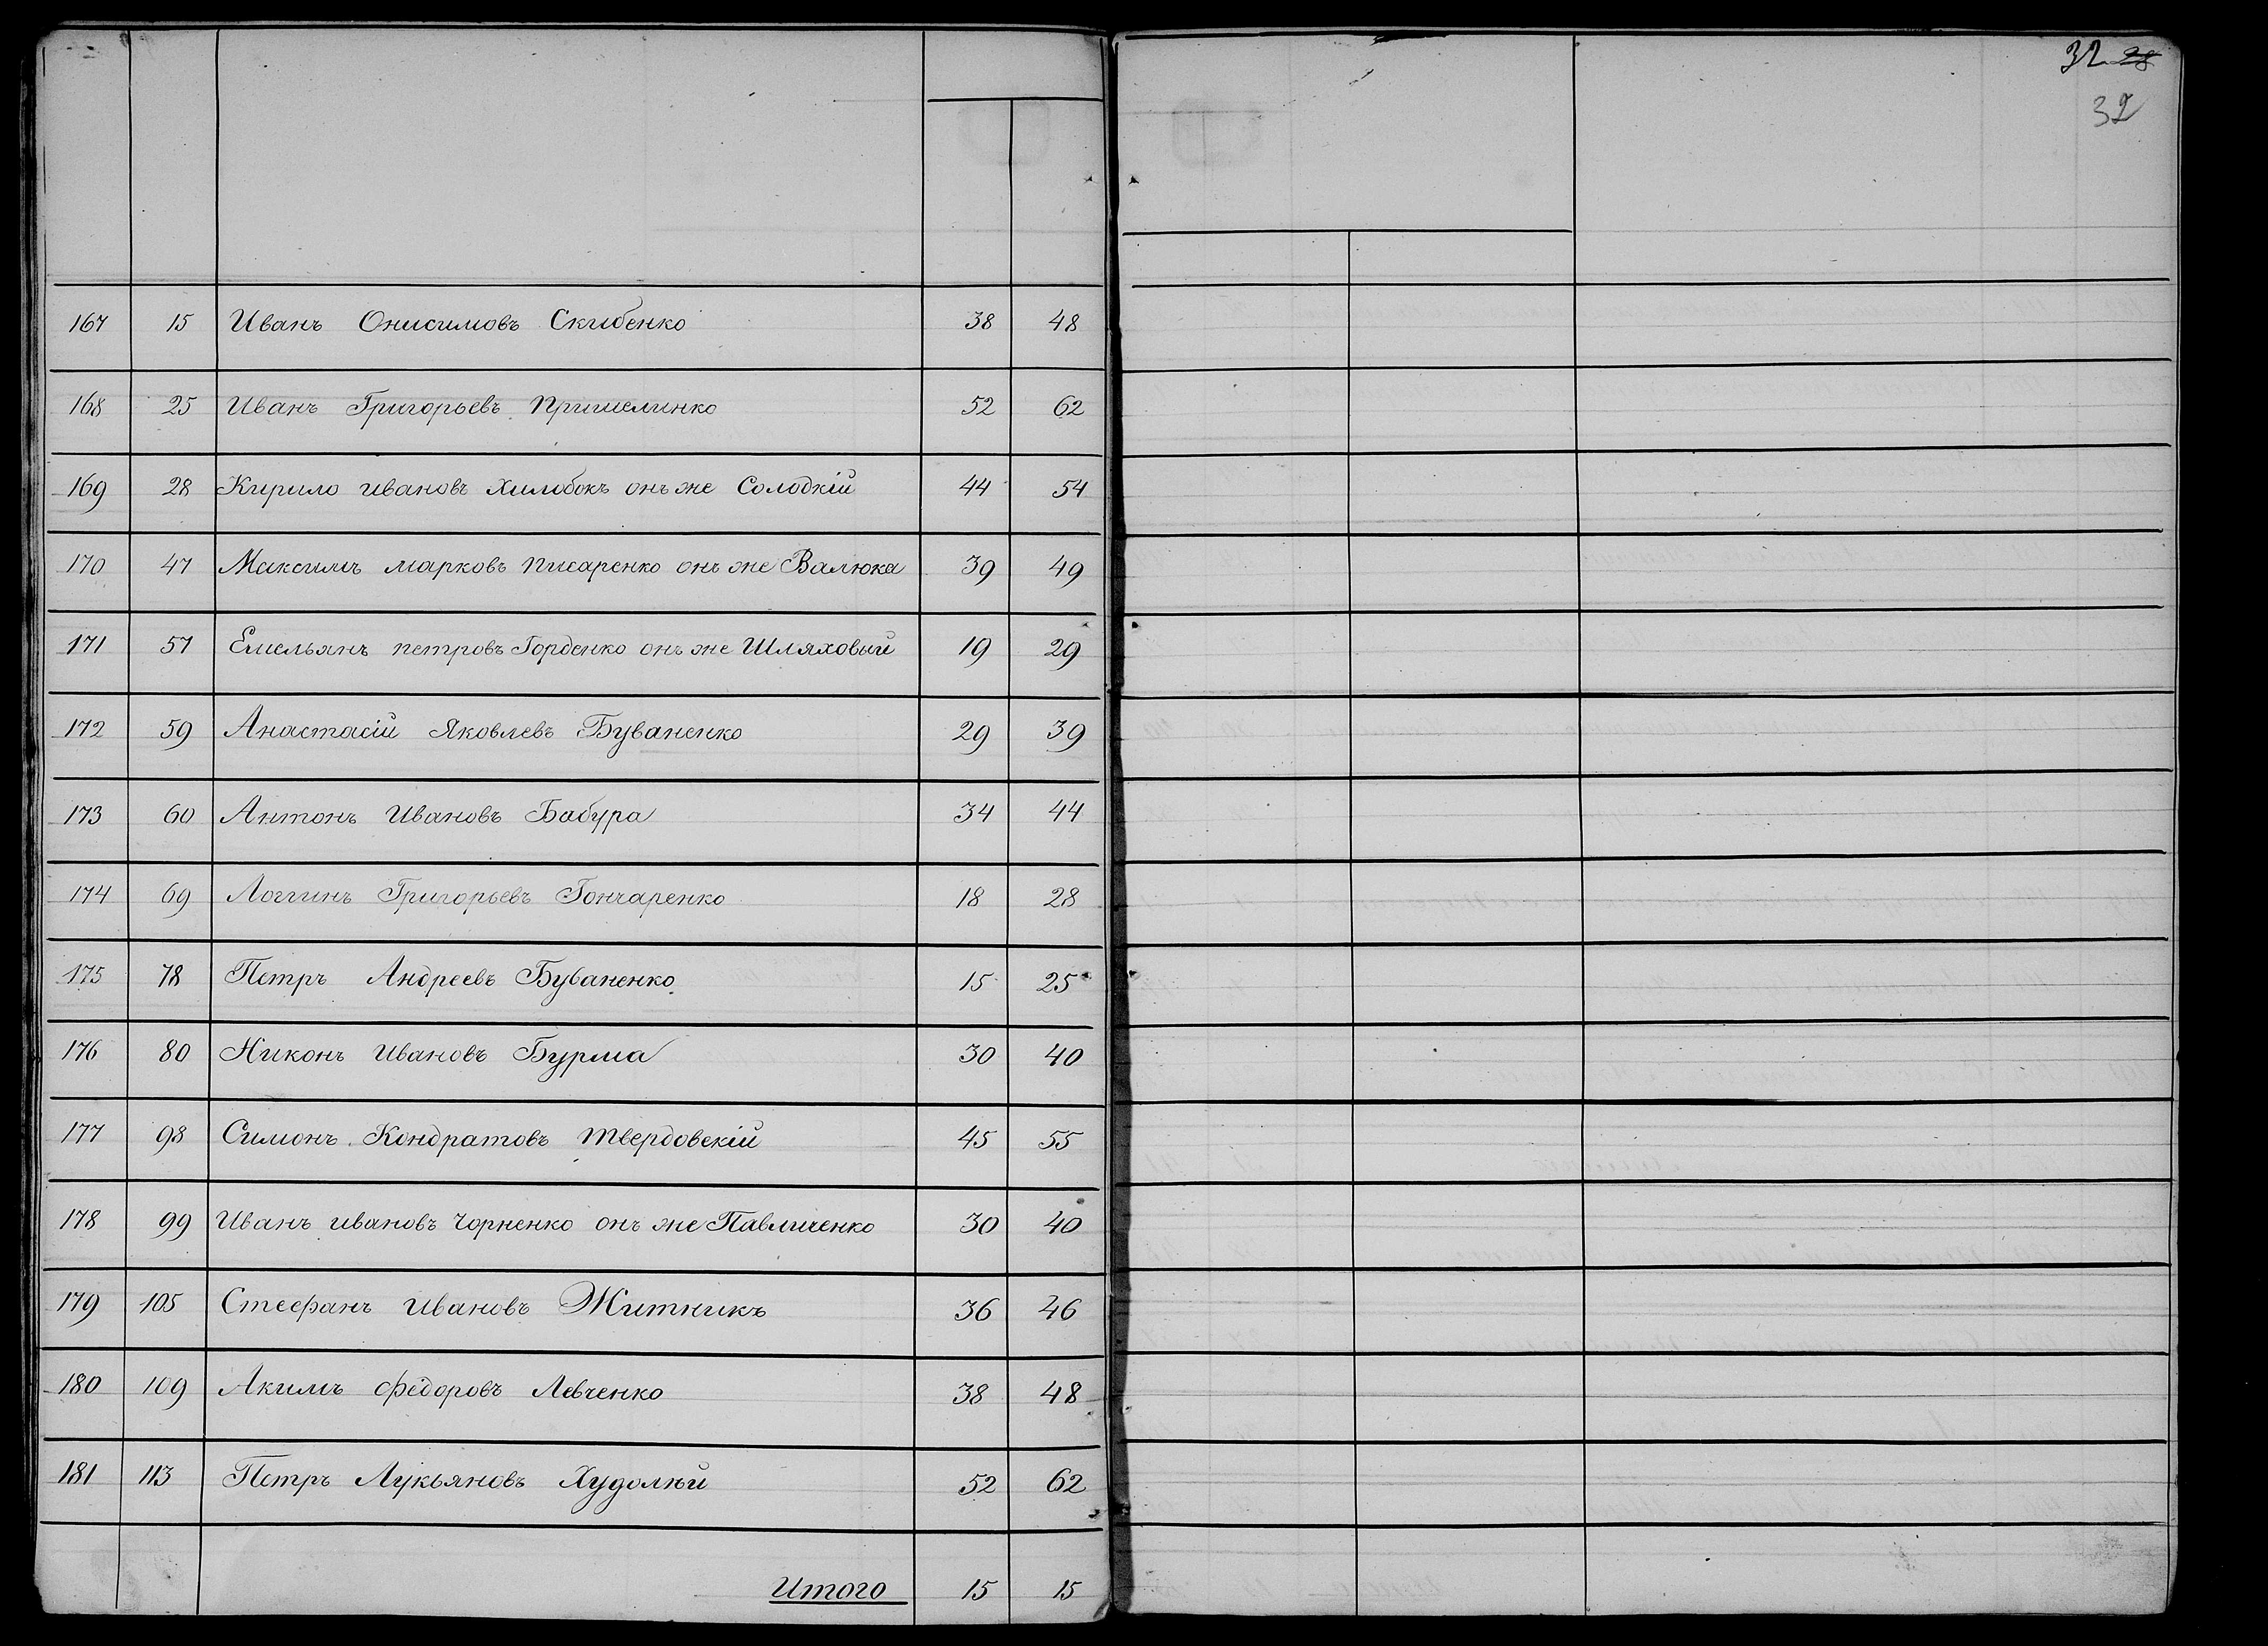 32 28
32
167 15 Иванъ Онисимовъ Скибенко 38 48
168 25 Иванъ Григорьевъ Пришелинко 52 62
169 28 Кирило Ивановъ Хилобокъ онъ же Солодкій 44 54
170 47 Максимъ Марковъ Писаренко онъ же Валюка 39 49
171 57 Емельянъ Петровъ Горденко онъ же Шляховый 19 29
172 59 Анастасій Яковлевъ Буваненко 29 39
173 60 Антонъ Ивановъ Бабура 34 44
174 69 Логгинъ Григорьевъ Гончаренко 18 28
175 78 Петръ Андреевъ Буваненко 15 25
176 80 Никонъ Ивановъ Бурма 30 40
177 98 Симонъ Кондратовъ Твердовскій 45 55
178 99 Иванъ Ивановъ Чорненко онъ же Павличенко 30 40
179 105 Стефанъ Ивановъ Житникъ 36 46
180 109 Акимъ Федоровъ Левченко 38 48
181 113 Петръ Лукьяновъ Худолѣй 52 62
Итого 15 15